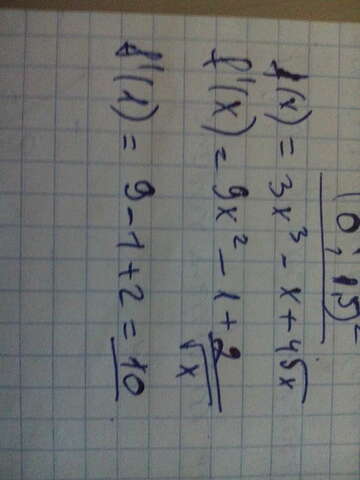 (0; 15)
f(x) = 3x³ - x + 4√x
f'(x) = 9x² - 1 + 2/√x
f'(1) = 9 - 1 + 2 = 10